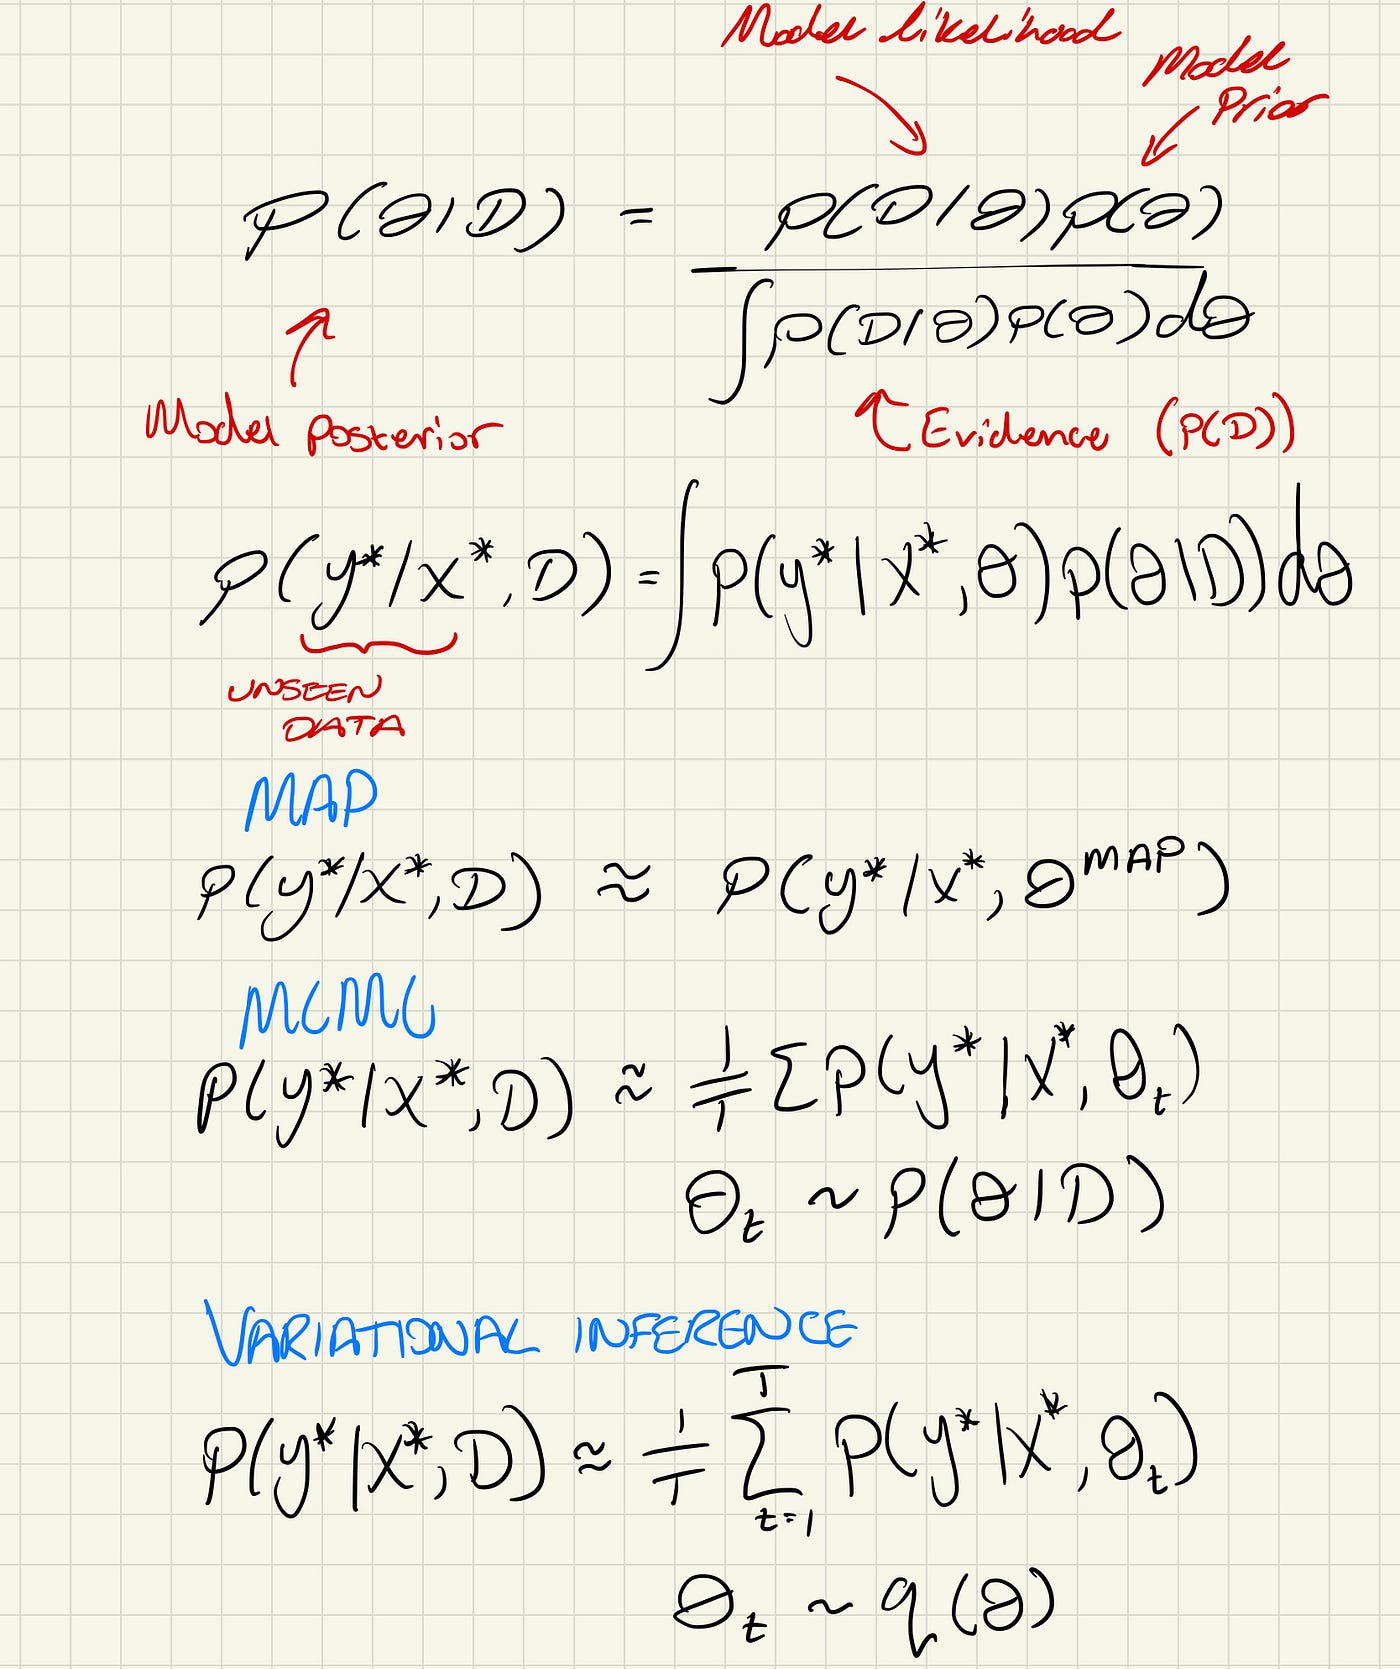 Model likelihood
Model
Prior
P(θ|D) = p(D|θ)p(θ)
∫p(D|θ)p(θ)dθ
Model posterior
Evidence (p(D))
p(y*|x*, D) = ∫p(y*|x*, θ)p(θ|D)dθ
UNSEEN
DATA
MAP
P(y*|x*, D) ≈ P(y*|x*, θ^MAP)
MCMC
P(y*|x*, D) ≈ 1/T ΣP(y*|x*, θ_t)
θ_t ~ P(θ|D)
VARIATIONAL INFERENCE
P(y*|x*, D) ≈ 1/T Σ_{t=1}^{T} P(y*|x*, θ_t)
θ_t ~ q(θ)